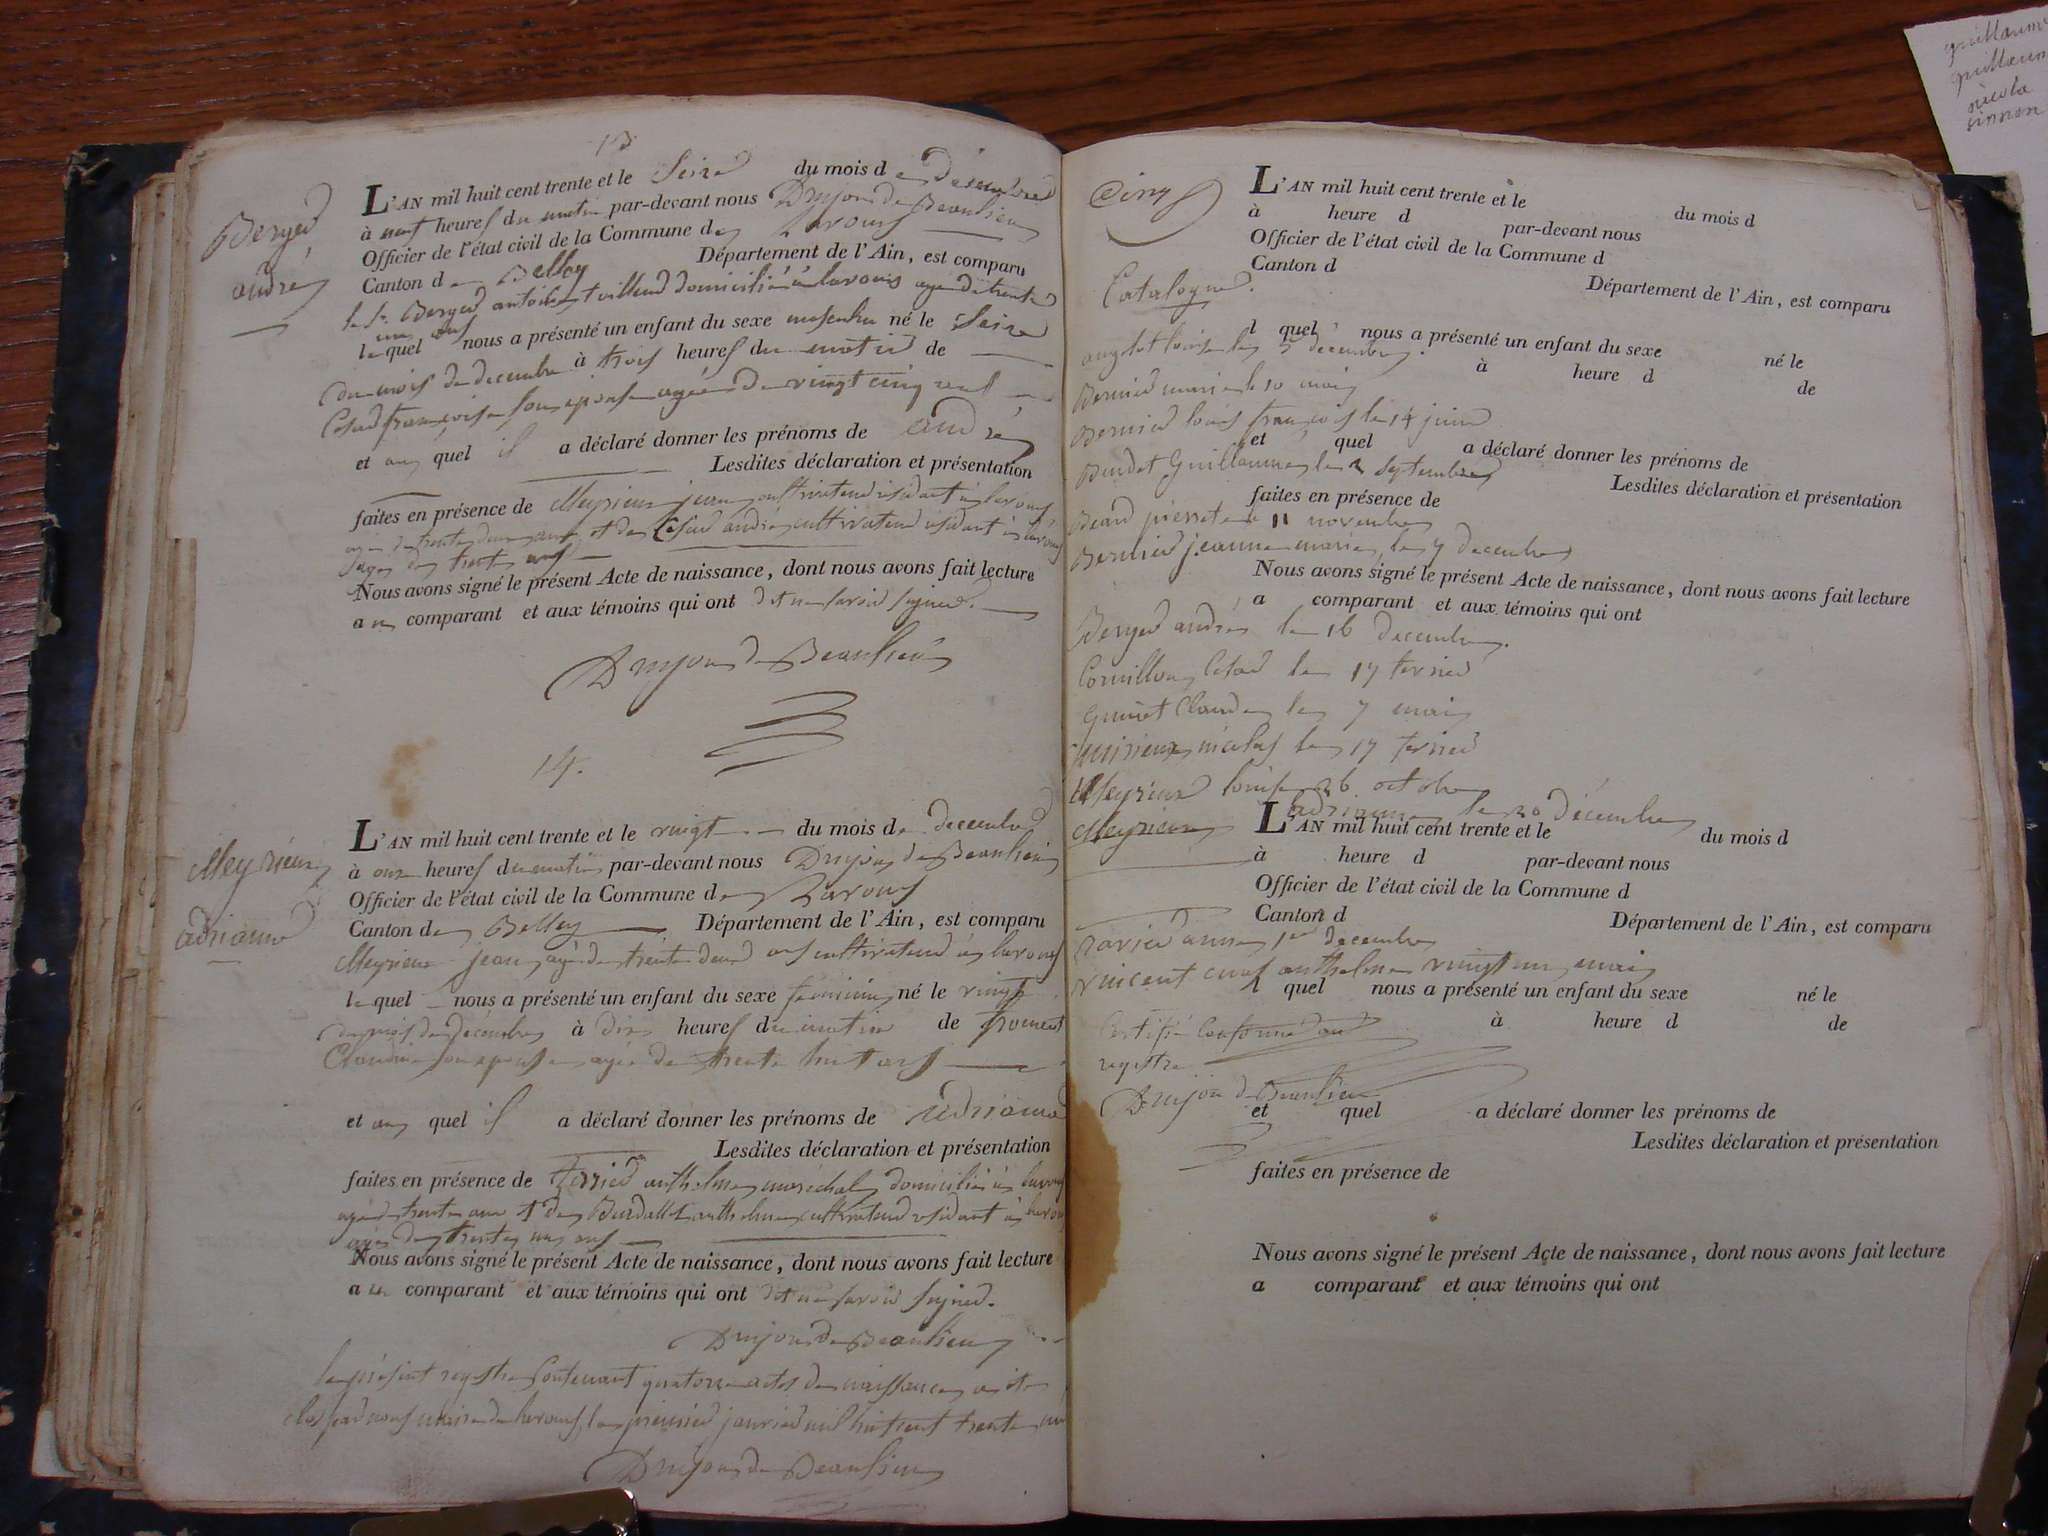 13
Berger
andré
L'AN mil huit cent trente et le Seize du mois de décembre
à neuf heures du matin par-devant nous Dujon de Beaulieu
Officier de l'état civil de la Commune de Lavours
Canton de Belley Département de l'Ain, est comparu
le Sr. Berger antoine domicilié à lavours agé de trente
un ans
lequel nous a présenté un enfant du sexe masculin né le Seize
du mois de decembre à trois heures du matin de
françoise son epouse agée de vingt cinq ans
et au quel il a déclaré donner les prénoms de andré
Lesdites déclaration et présentation
faites en présence de Meyrieux jean cultivateur résidant à lavours
agé de trente deux ans et de andré cultivateur résidant à lavours
agé de trente ans
Nous avons signé le présent Acte de naissance, dont nous avons fait lecture
au comparant et aux témoins qui ont dit ne savoir signer.
Dujon de Beaulieu
14.
Meyrieux
adrianne
L'AN mil huit cent trente et le vingt du mois de decembre
à onze heures du matin par-devant nous Dujon de Beaulieu
Officier de l'état civil de la Commune de Lavours
Canton de Belley Département de l'Ain, est comparu
Meyrieux jean agé de trente deux ans cultivateur à lavours
lequel nous a présenté un enfant du sexe feminin né le vingt
du mois de décembre à dix heures du matin de
Claudine son epouse agée de trente huit ans
et au quel il a déclaré donner les prénoms de adrianne
Lesdites déclaration et présentation
faites en présence de anthelme maréchal domicilié à lavours
agé de trente ans et de Burdallet anthelme cultivateur résidant à lavours
agé de trente un ans
Nous avons signé le présent Acte de naissance, dont nous avons fait lecture
au comparant et aux témoins qui ont dit ne savoir signer.
Dujon de Beaulieu
le présent registre Contenant quatorze actes de naissance a été
clos par nous maire de lavours le premier janvier mil huit cent trente un
Dujon de Beaulieu
Cinq
L'AN mil huit cent trente et le du mois d
à heure d par-devant nous
Officier de l'état civil de la Commune d
Canton d
Catalogue.
Département de l'Ain, est comparu
l quel nous a présenté un enfant du sexe né le
louise le 5 decembre.
à heure d de
Bernier marie le 10 mai
Bernier louis françois le 14 juin
et quel a déclaré donner les prénoms de
Burdet Guillaume le 2 septembre
Lesdites déclaration et présentation
faites en présence de
Béard pierrette le 11 novembre
Bernier jeanne marie le 7 decembre
Nous avons signé le présent Acte de naissance, dont nous avons fait lecture
a comparant et aux témoins qui ont
Berger andré le 16 decembre.
Cornillon César le 17 fevrier
Guniet Claude le 7 mai
nicolas le 17 fevrier
Meyrieux louise 26 octobre
Meyrieux adrianne le 20 décembre
L'AN mil huit cent trente et le du mois d
à heure d par-devant nous
Officier de l'état civil de la Commune d
Canton d Département de l'Ain, est comparu
anne 1er decembre
vincent anthelme vingt un mai
l quel nous a présenté un enfant du sexe né le
à heure d de
Certifié Conforme au
registre
Dujon de Beaulieu
et quel a déclaré donner les prénoms de
Lesdites déclaration et présentation
faites en présence de
Nous avons signé le présent Acte de naissance, dont nous avons fait lecture
a comparant et aux témoins qui ont
guillaume
guillaum
nicola
simon